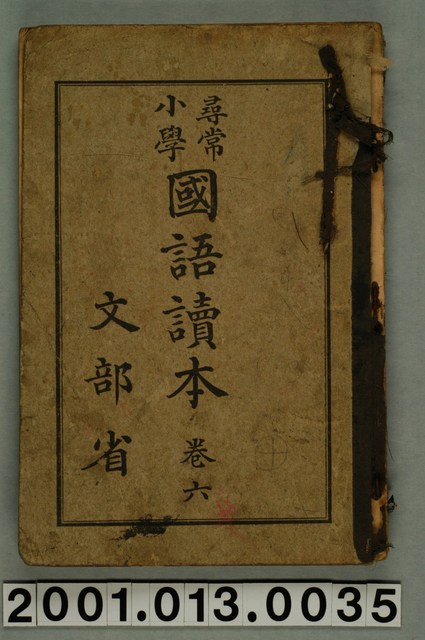 尋常
小學
國語讀本 卷六
文部省
2001.013.0035